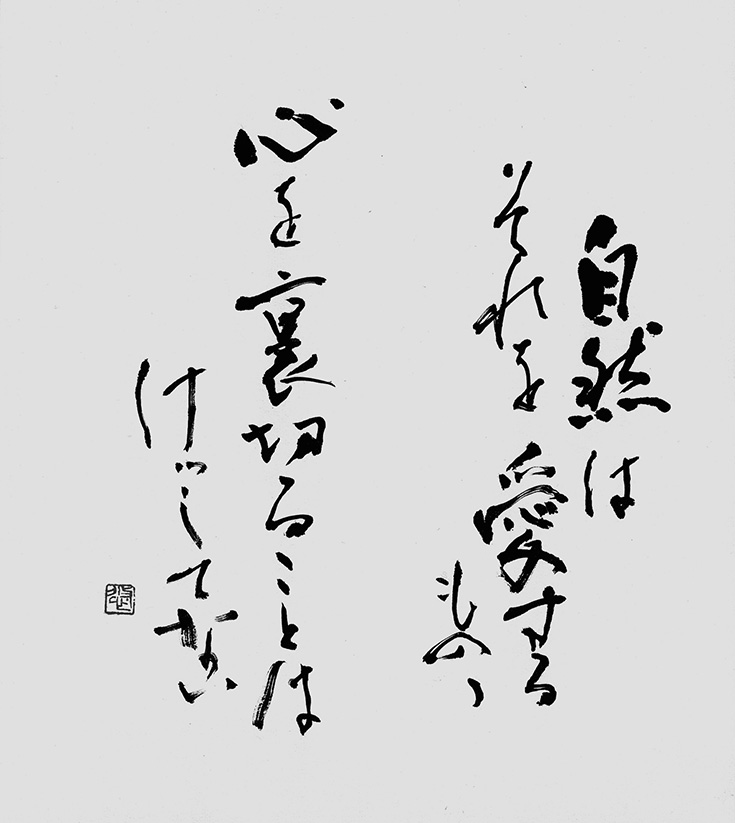 自然は
それを愛する
ものゝ
心を裏切ることは
けっしてない